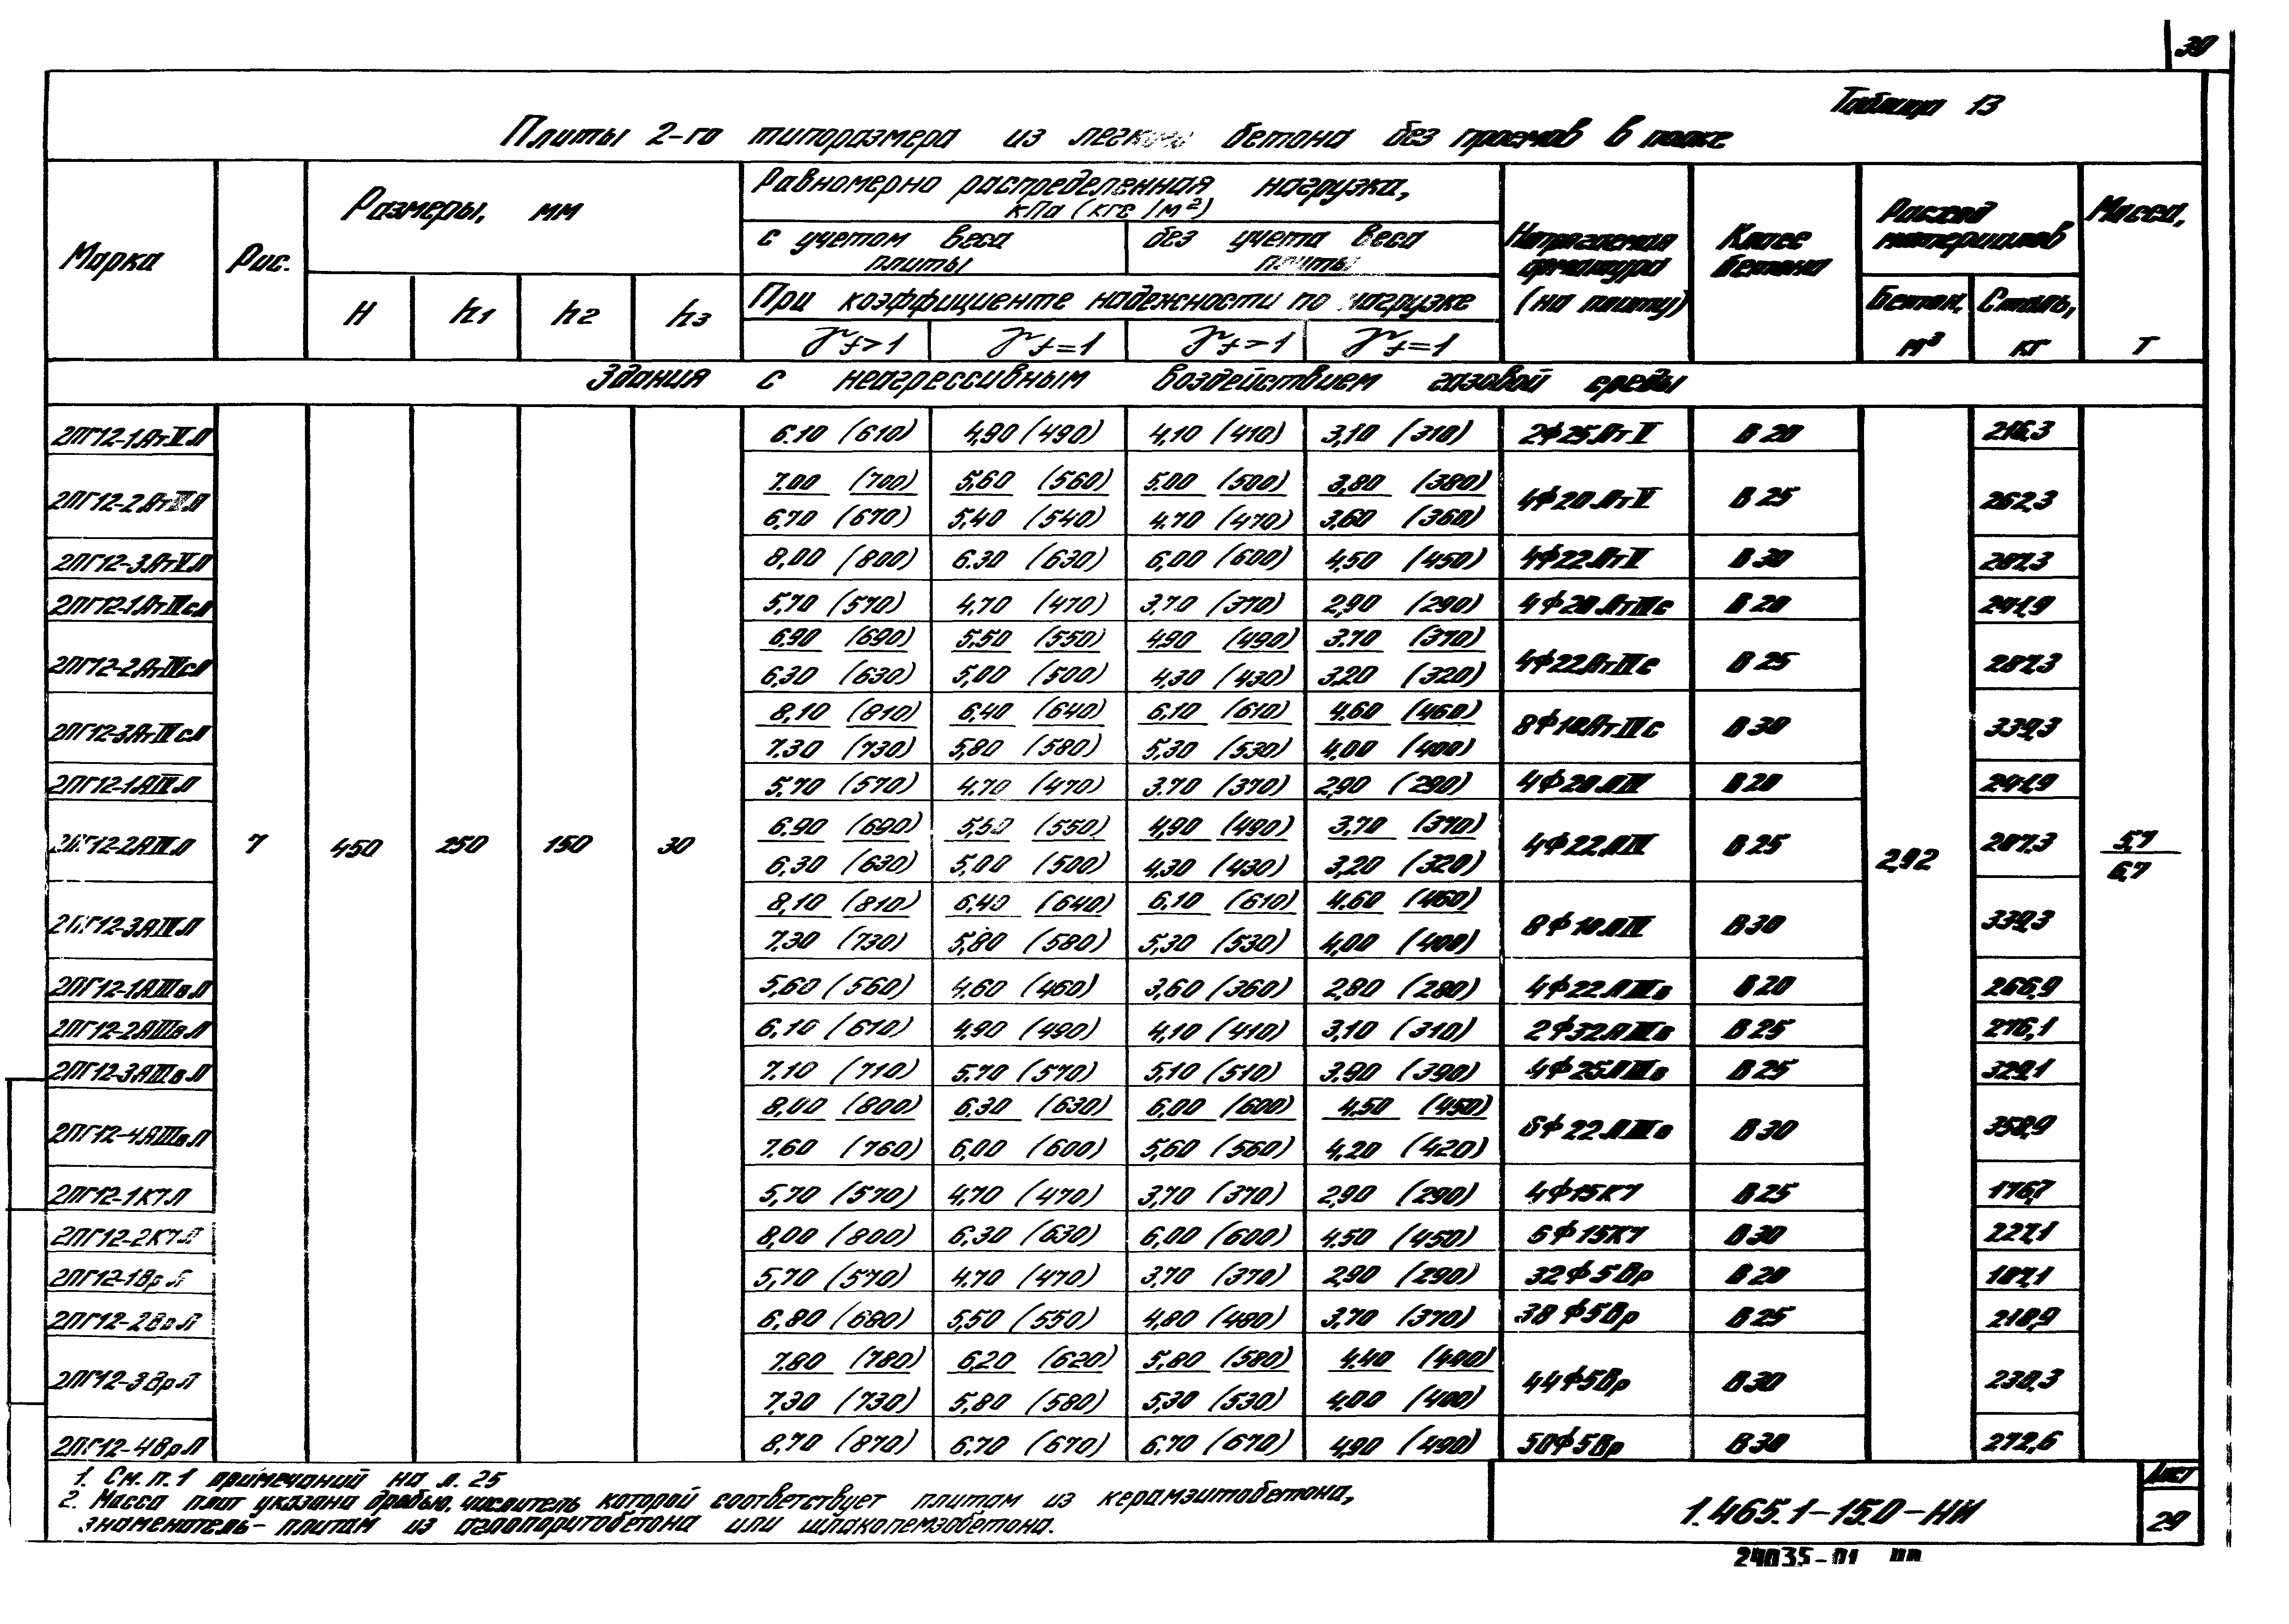 30
Таблица 13
Плиты 2-го типоразмера из легкого бетона без проемов в полке
Марка Рис. Размеры, мм Равномерно распределенная нагрузка, кПа (кгс/м²) Напрягаемая арматура (на плиту) Класс бетона Расход материалов Масса, т
с учетом веса плиты без учета веса плиты
H h1 h2 h3 При коэффициенте надежности по нагрузке Бетон, м³ Сталь, кг
γf>1 γf=1 γf>1 γf=1
Здания с неагрессивным воздействием газовой среды
2ПГ12-1.АтV.Л 6.10 (610) 4,90 (490) 4,10 (410) 3,10 (310) 2Ф25.АтV В20 216,3
7.00 (700) 5,60 (560) 5.00 (500) 3,80 (380)
2ПГ12-2.Ат Л 4Ф20.АтV В25 262,3
6,70 (670) 5,40 (540) 4.70 (470) 3,60 (360)
2ПГ12-3.АтV.Л 8,00 (800) 6.30 (630) 6,00 (600) 4,50 (450) 4Ф22.АтV В30 287,3
2ПГ12-1.АтIVс.Л 5,70 (570) 4,70 (470) 3,70 (370) 2,90 (290) 4Ф20.АтIVс В20 241,9
6.90 (690) 5,50 (550) 4,90 (490) 3.70 (370)
2ПГ12-2.АтIVс.Л 4Ф22.АтIVс В25 287,3
6,30 (630) 5,00 (500) 4,30 (430) 3,20 (320)
8,10 (810) 6,40 (640) 6,10 (610) 4,60 (460)
2ПГ12-3.АтIVс.Л 8Ф18.АтIVс В30 339,3
7.30 (730) 5,80 (580) 5,30 (530) 4,00 (400)
2ПГ12-1.АIV.Л 5.70 (570) 4.70 (470) 3.70 (370) 2,90 (290) 4Ф20.АIV В20 241,9
6.90 (690) 5,50 (550) 4,90 (490) 3,70 (370)
2ПГ12-2.АIV.Л 7 450 250 150 30 4Ф22.АIV В25 2,92 287,3 5,7
6,30 (630) 5,00 (500) 4,30 (430) 3,20 (320) 6,7
8,10 (810) 6,40 (640) 6.10 (610) 4.60 (460)
2ПГ12-3.АIV.Л 8Ф18.АIV В30 339,3
7.30 (730) 5,80 (580) 5,30 (530) 4,00 (400)
2ПГ12-1.АIIIв.Л 5,60 (560) 4,60 (460) 3,60 (360) 2,80 (280) 4Ф22.АIIIв В20 266,9
2ПГ12-2.АIIIв.Л 6,10 (610) 4,90 (490) 4,10 (410) 3,10 (310) 2Ф32.АIIIв В25 276,1
2ПГ12-3.АIIIв.Л 7.10 (710) 5.70 (570) 5,10 (510) 3,90 (390) 4Ф25.АIIIв В25 329,1
8,00 (800) 6,30 (630) 6,00 (600) 4,50 (450)
2ПГ12-4.АIIIв.Л 6Ф22.АIIIв В30 358,9
7.60 (760) 6,00 (600) 5,60 (560) 4,20 (420)
2ПГ12-1К7Л 5,70 (570) 4,70 (470) 3,70 (370) 2,90 (290) 4Ф15К7 В25 176,7
2ПГ12-2К7Л 8,00 (800) 6,30 (630) 6,00 (600) 4,50 (450) 6Ф15К7 В30 227,1
2ПГ12-1ВрЛ 5,70 (570) 4.70 (470) 3,70 (370) 2,90 (290) 32Ф5Вр В20 187,1
2ПГ12-2ВрЛ 6,80 (680) 5,50 (550) 4,80 (480) 3,70 (370) 38Ф5Вр В25 218,9
7.80 (780) 6,20 (620) 5,80 (580) 4,40 (440)
2ПГ12-3ВрЛ 44Ф5Вр В30 238,3
7,30 (730) 5,80 (580) 5,30 (530) 4,00 (400)
2ПГ12-4ВрЛ 8,70 (870) 6,70 (670) 6,70 (670) 4,90 (490) 50Ф5Вр В30 272,6
1. См. п.1 примечаний на л. 25
2. Масса плит указана дробью, числитель которой соответствует плитам из керамзитобетона,
знаменатель - плитам из аглопоритобетона или шлакопемзобетона.
1.465.1-15.0-НИ
Лист
29
24035-01